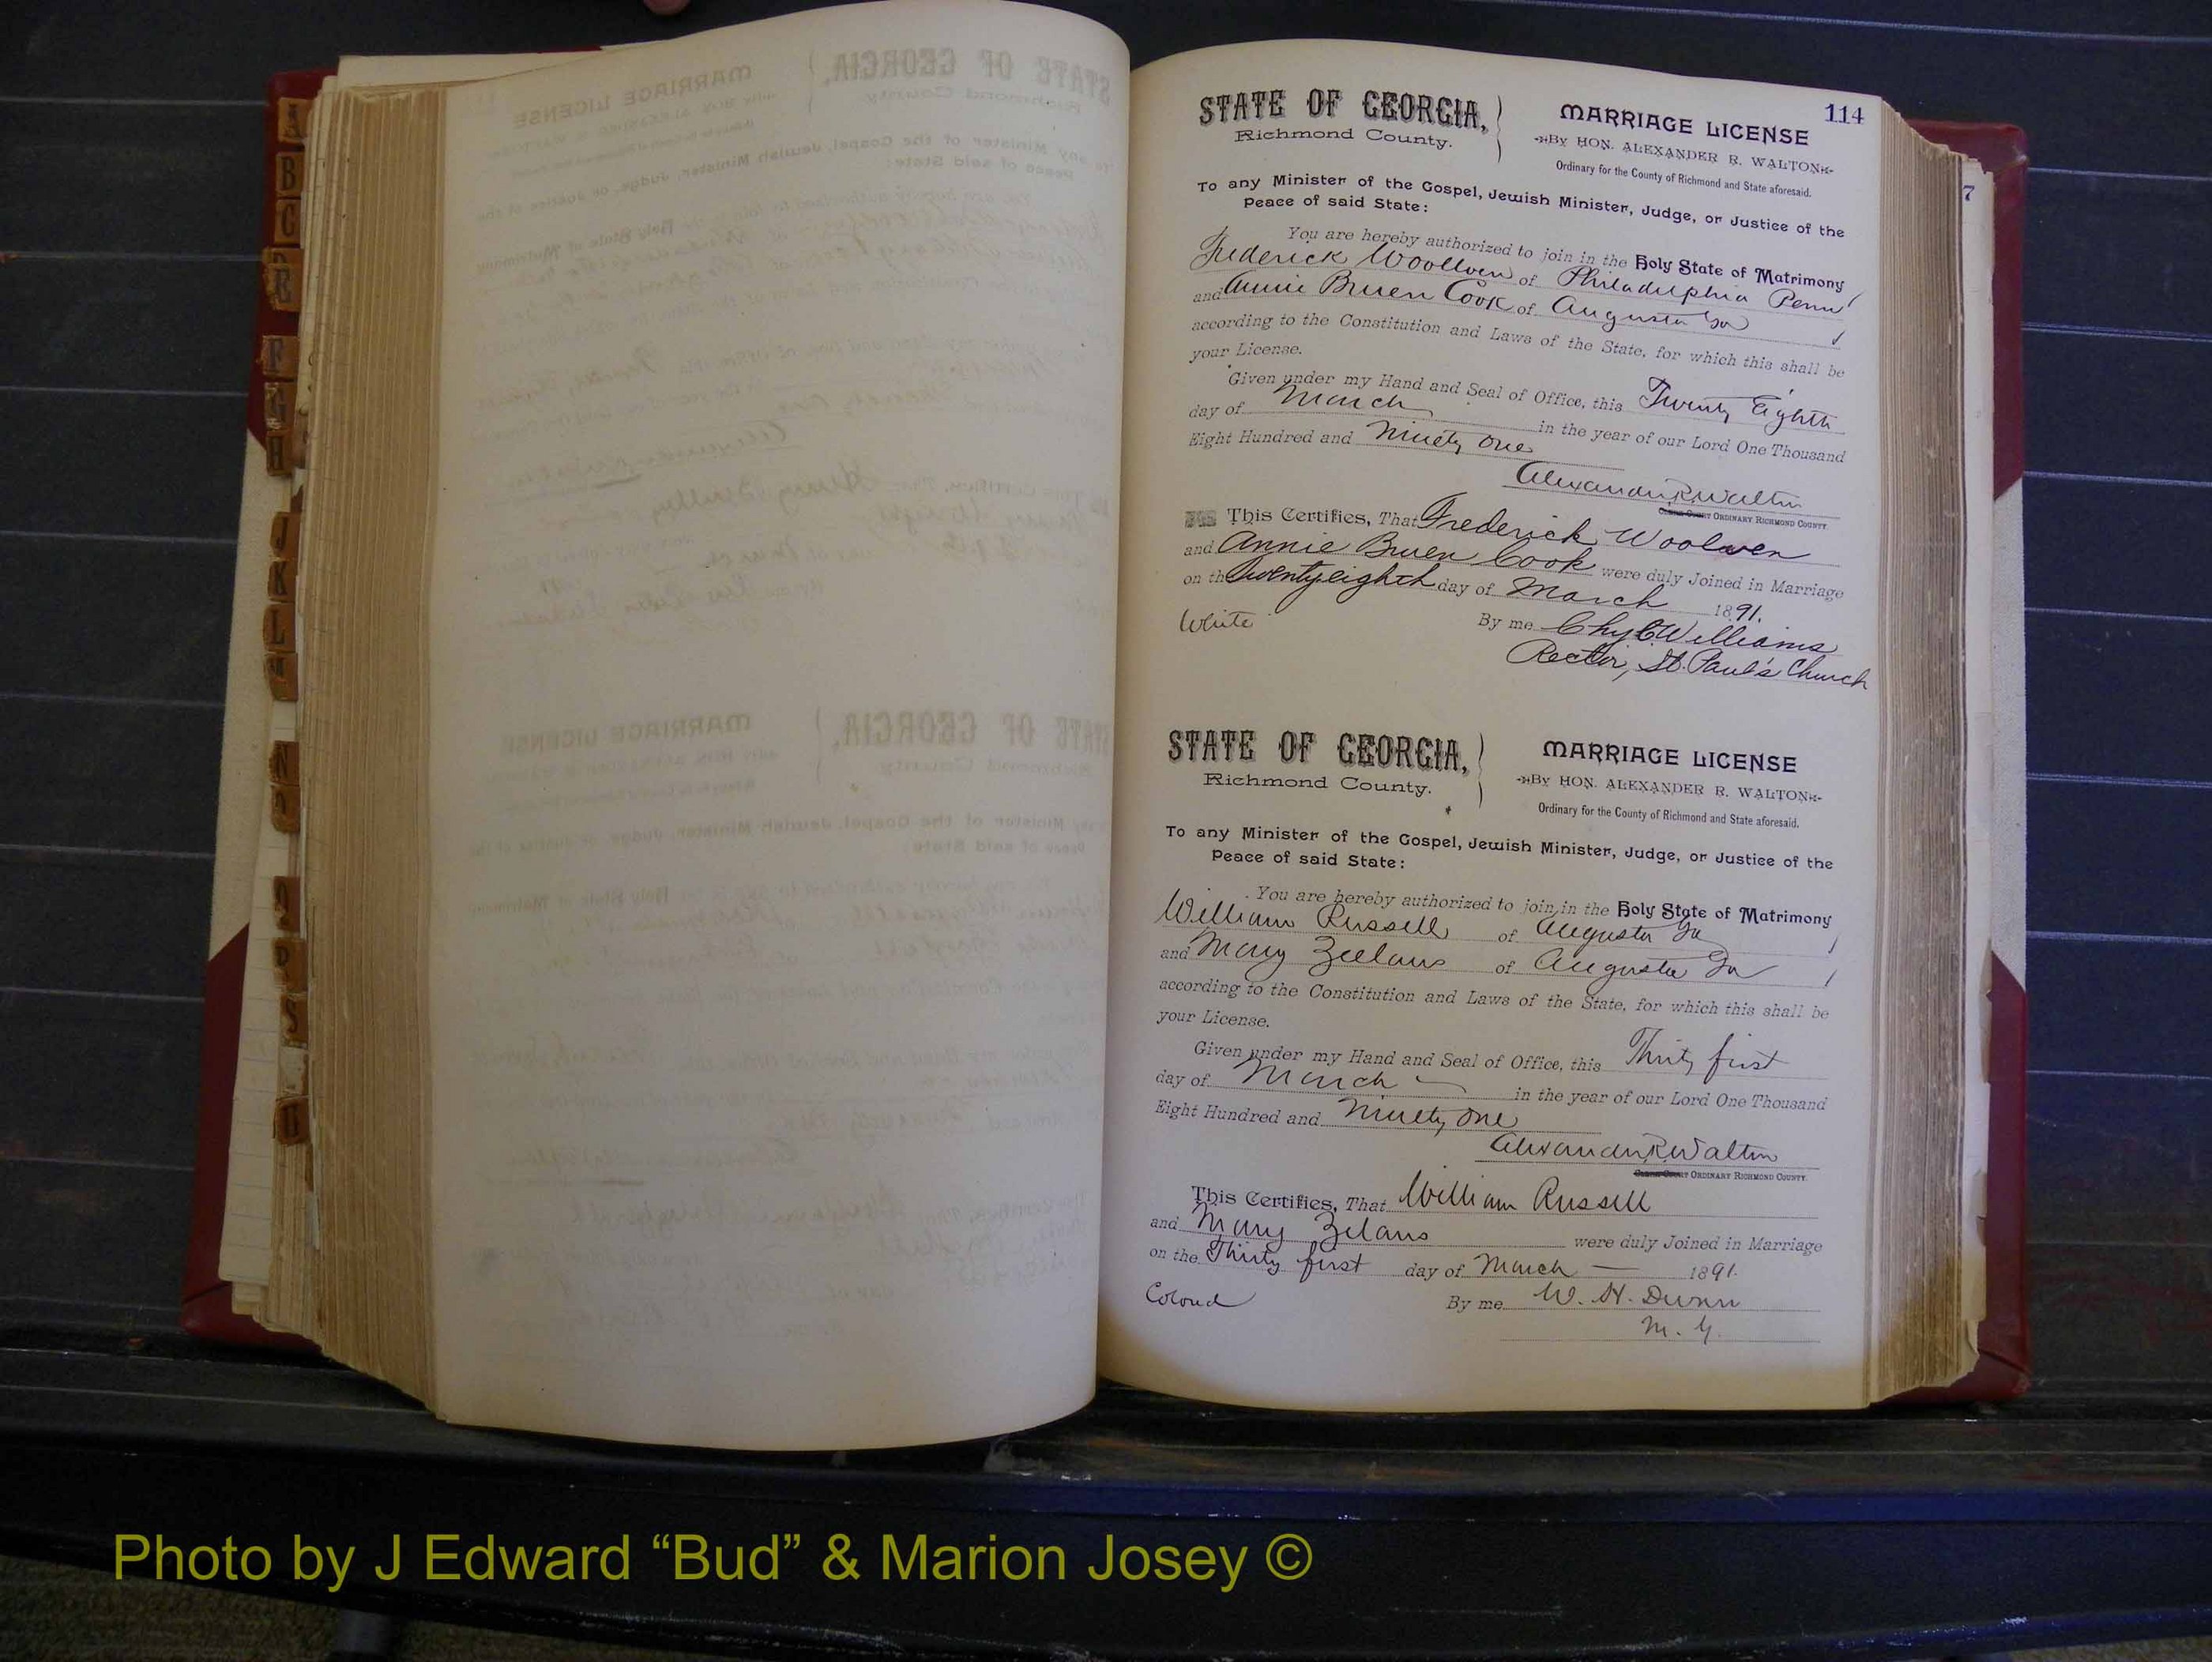 114
STATE OF GEORGIA,
Richmond County.
MARRIAGE LICENSE
By HON. ALEXANDER R. WALTON
Ordinary for the County of Richmond and State aforesaid.
To any Minister of the Gospel, Jewish Minister, Judge, or Justice of the
Peace of said State:
You are hereby authorized to join in the Holy State of Matrimony
Frederick Woolwen of Philadelphia Penn
and Annie Bruen Cook of Augusta Ga
according to the Constitution and Laws of the State, for which this shall be
your License.
Given under my Hand and Seal of Office, this Twenty Eighth
day of March in the year of our Lord One Thousand
Eight Hundred and Ninety One
Alexander R. Walton
ORDINARY RICHMOND COUNTY.
This Certifies, That Frederick Woolwen
and Annie Bruen Cook were duly Joined in Marriage
on the Twenty eighth day of March 1891.
White
By me Chas C Williams
Rector, St. Paul's Church
STATE OF GEORGIA,
Richmond County.
MARRIAGE LICENSE
By HON. ALEXANDER R. WALTON
Ordinary for the County of Richmond and State aforesaid.
To any Minister of the Gospel, Jewish Minister, Judge, or Justice of the
Peace of said State:
You are hereby authorized to join in the Holy State of Matrimony
William Russell of Augusta Ga
and Mary Zeelans of Augusta Ga
according to the Constitution and Laws of the State, for which this shall be
your License.
Given under my Hand and Seal of Office, this Thirty first
day of March in the year of our Lord One Thousand
Eight Hundred and Ninety One
Alexander R. Walton
ORDINARY RICHMOND COUNTY.
This Certifies, That William Russell
and Mary Zelans were duly Joined in Marriage
on the Thirty first day of March 1891.
Colored
By me W. H. Dunn
M. G.
7
A
B
C
E
F
G
H
J
K
L
M
N
O
P
S
U
Photo by J Edward “Bud” & Marion Josey ©